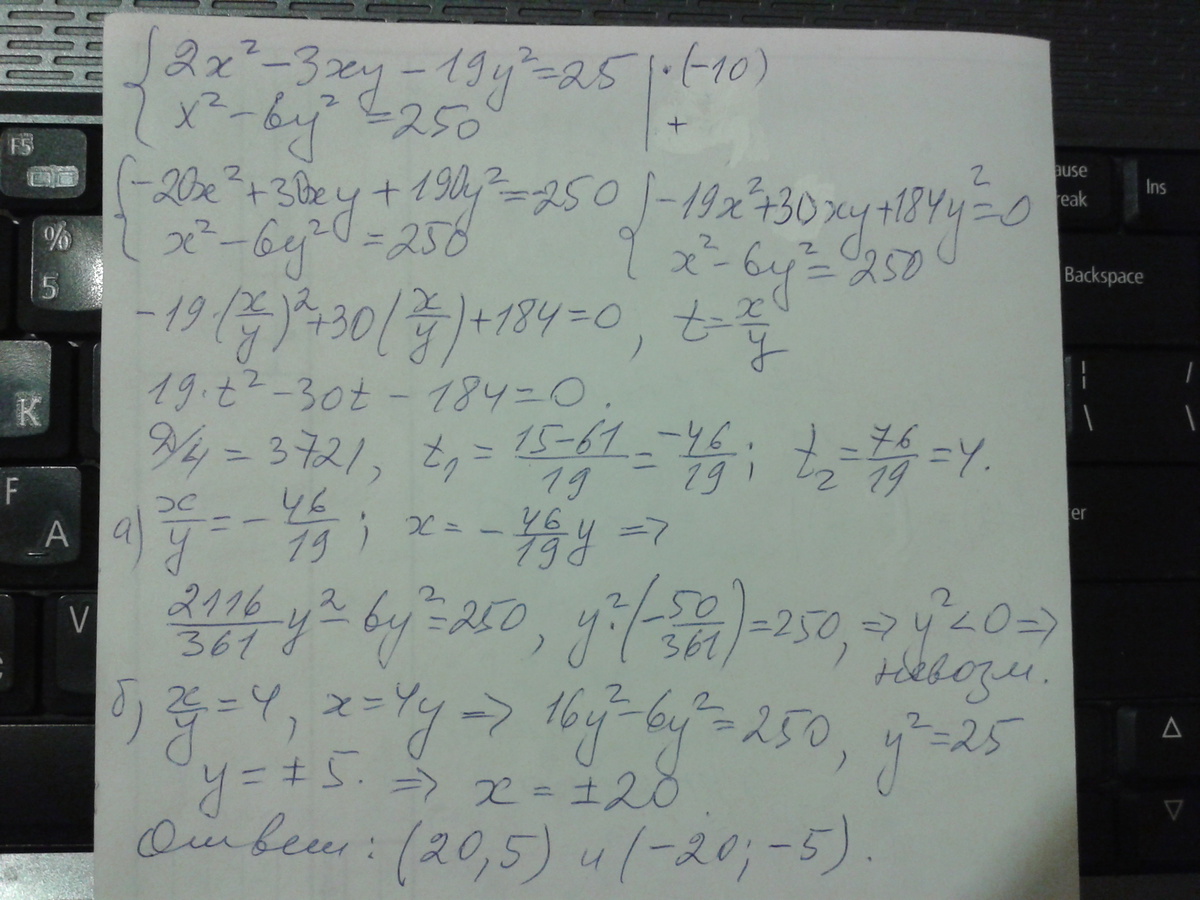 { 2x² − 3xy − 19y² = 25 | · (−10)
x² − 6y² = 250 | +
{ −20x² + 30xy + 190y² = −250 { −19x² + 30xy + 184y² = 0
x² − 6y² = 250 x² − 6y² = 250
−19·(x/y)² + 30(x/y) + 184 = 0, t = x/y
19·t² − 30t − 184 = 0.
D/4 = 3721, t₁ = (15−61)/19 = −46/19; t₂ = 76/19 = 4.
а) x/y = −46/19; x = −46/19 y =>
2116/361 y² − 6y² = 250, y²·(−50/361) = 250, => y² < 0 =>
невозм.
б) x/y = 4, x = 4y => 16y² − 6y² = 250, y² = 25
y = ±5. => x = ±20.
Ответ: (20, 5) и (−20; −5).
F5
%
5
K
F
A
V
ause
reak
Ins
Backspace
|
\
/
\
ter